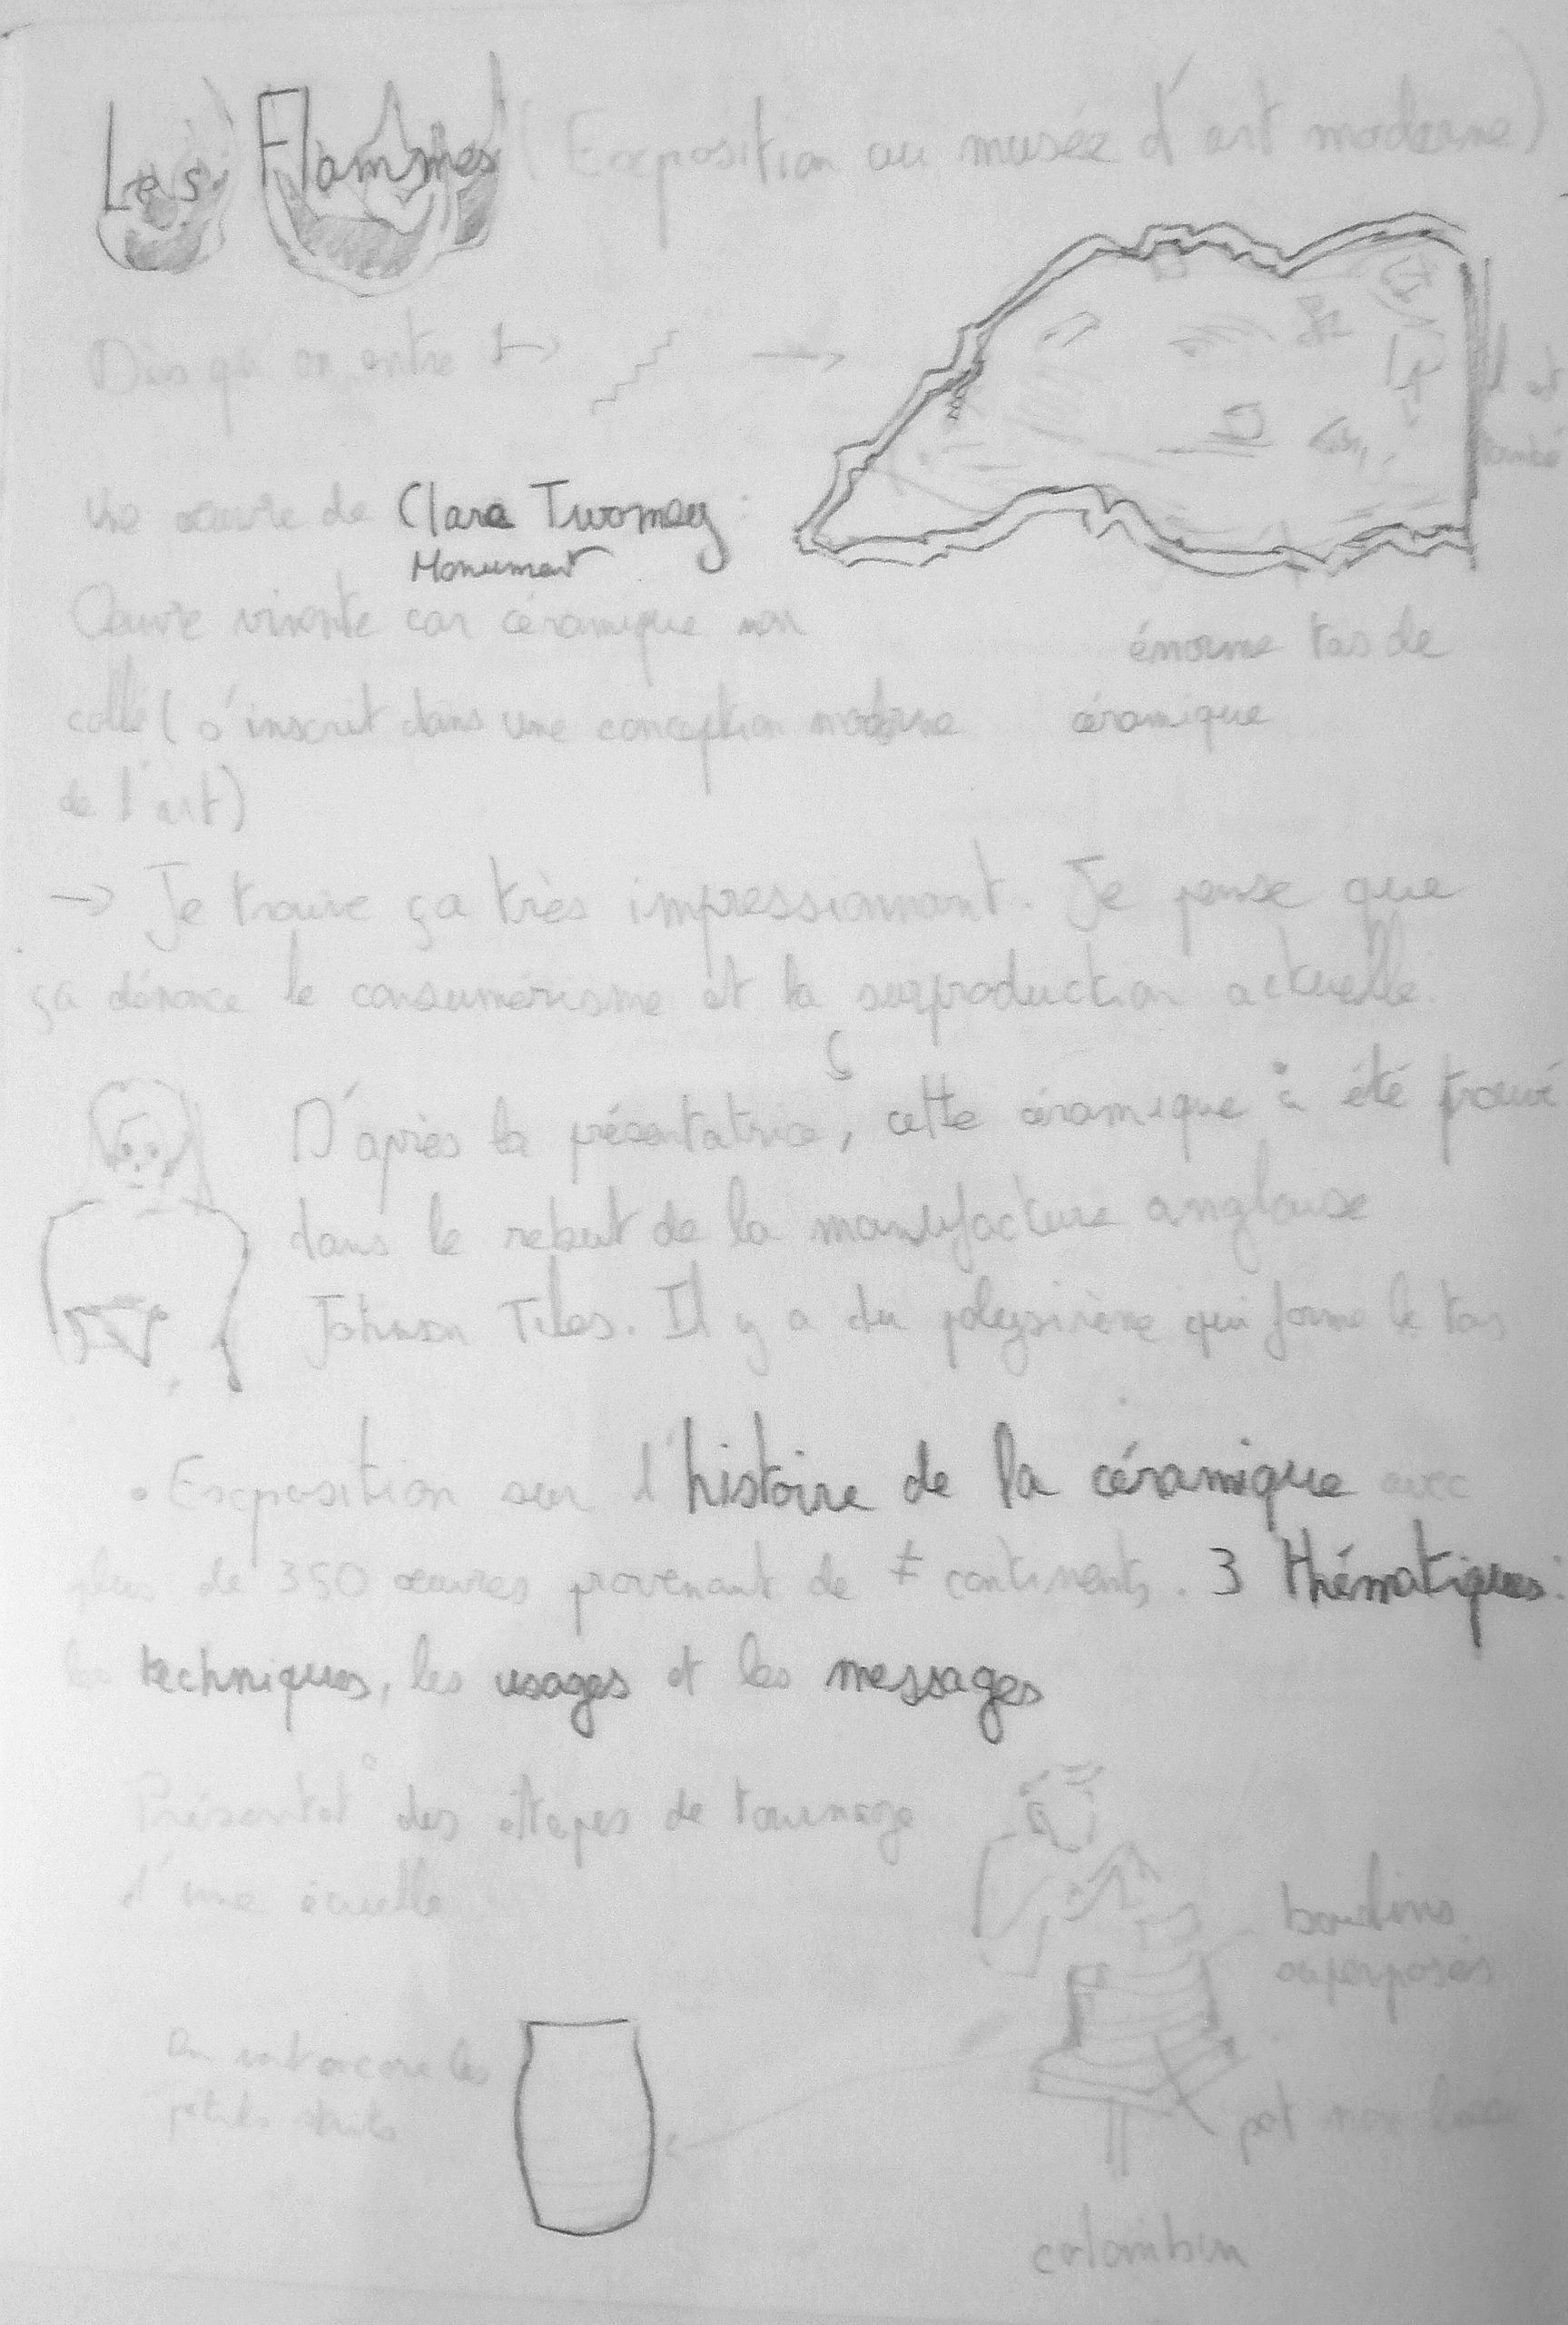 Les Flammes (Exposition au musée d'art moderne)
Dès qu'on entre
Il est
tombé
une oeuvre de Clare Twomey :
Monument
Oeuvre vivante car céramique non
collé (s'inscrit dans une conception moderne
de l'art)
énorme tas de
céramique
→ Je trouve ça très impressionnant. Je pense que
ça dénonce le consumérisme et la surproduction actuelle.
D'après la présentatrice, cette céramique a été trouvé
dans le rebut de la manufacture anglaise
Johnson Tiles. Il y a du polysirène qui forme le tas
• Exposition sur l'histoire de la céramique avec
plus de 350 œuvres provenant de ≠ continents. 3 thématiques :
les techniques, les usages et les messages
Présentat° des étapes de tournage
d'une écuelle
boudins
superposés
on voit encore les
petits
pot non
colombin